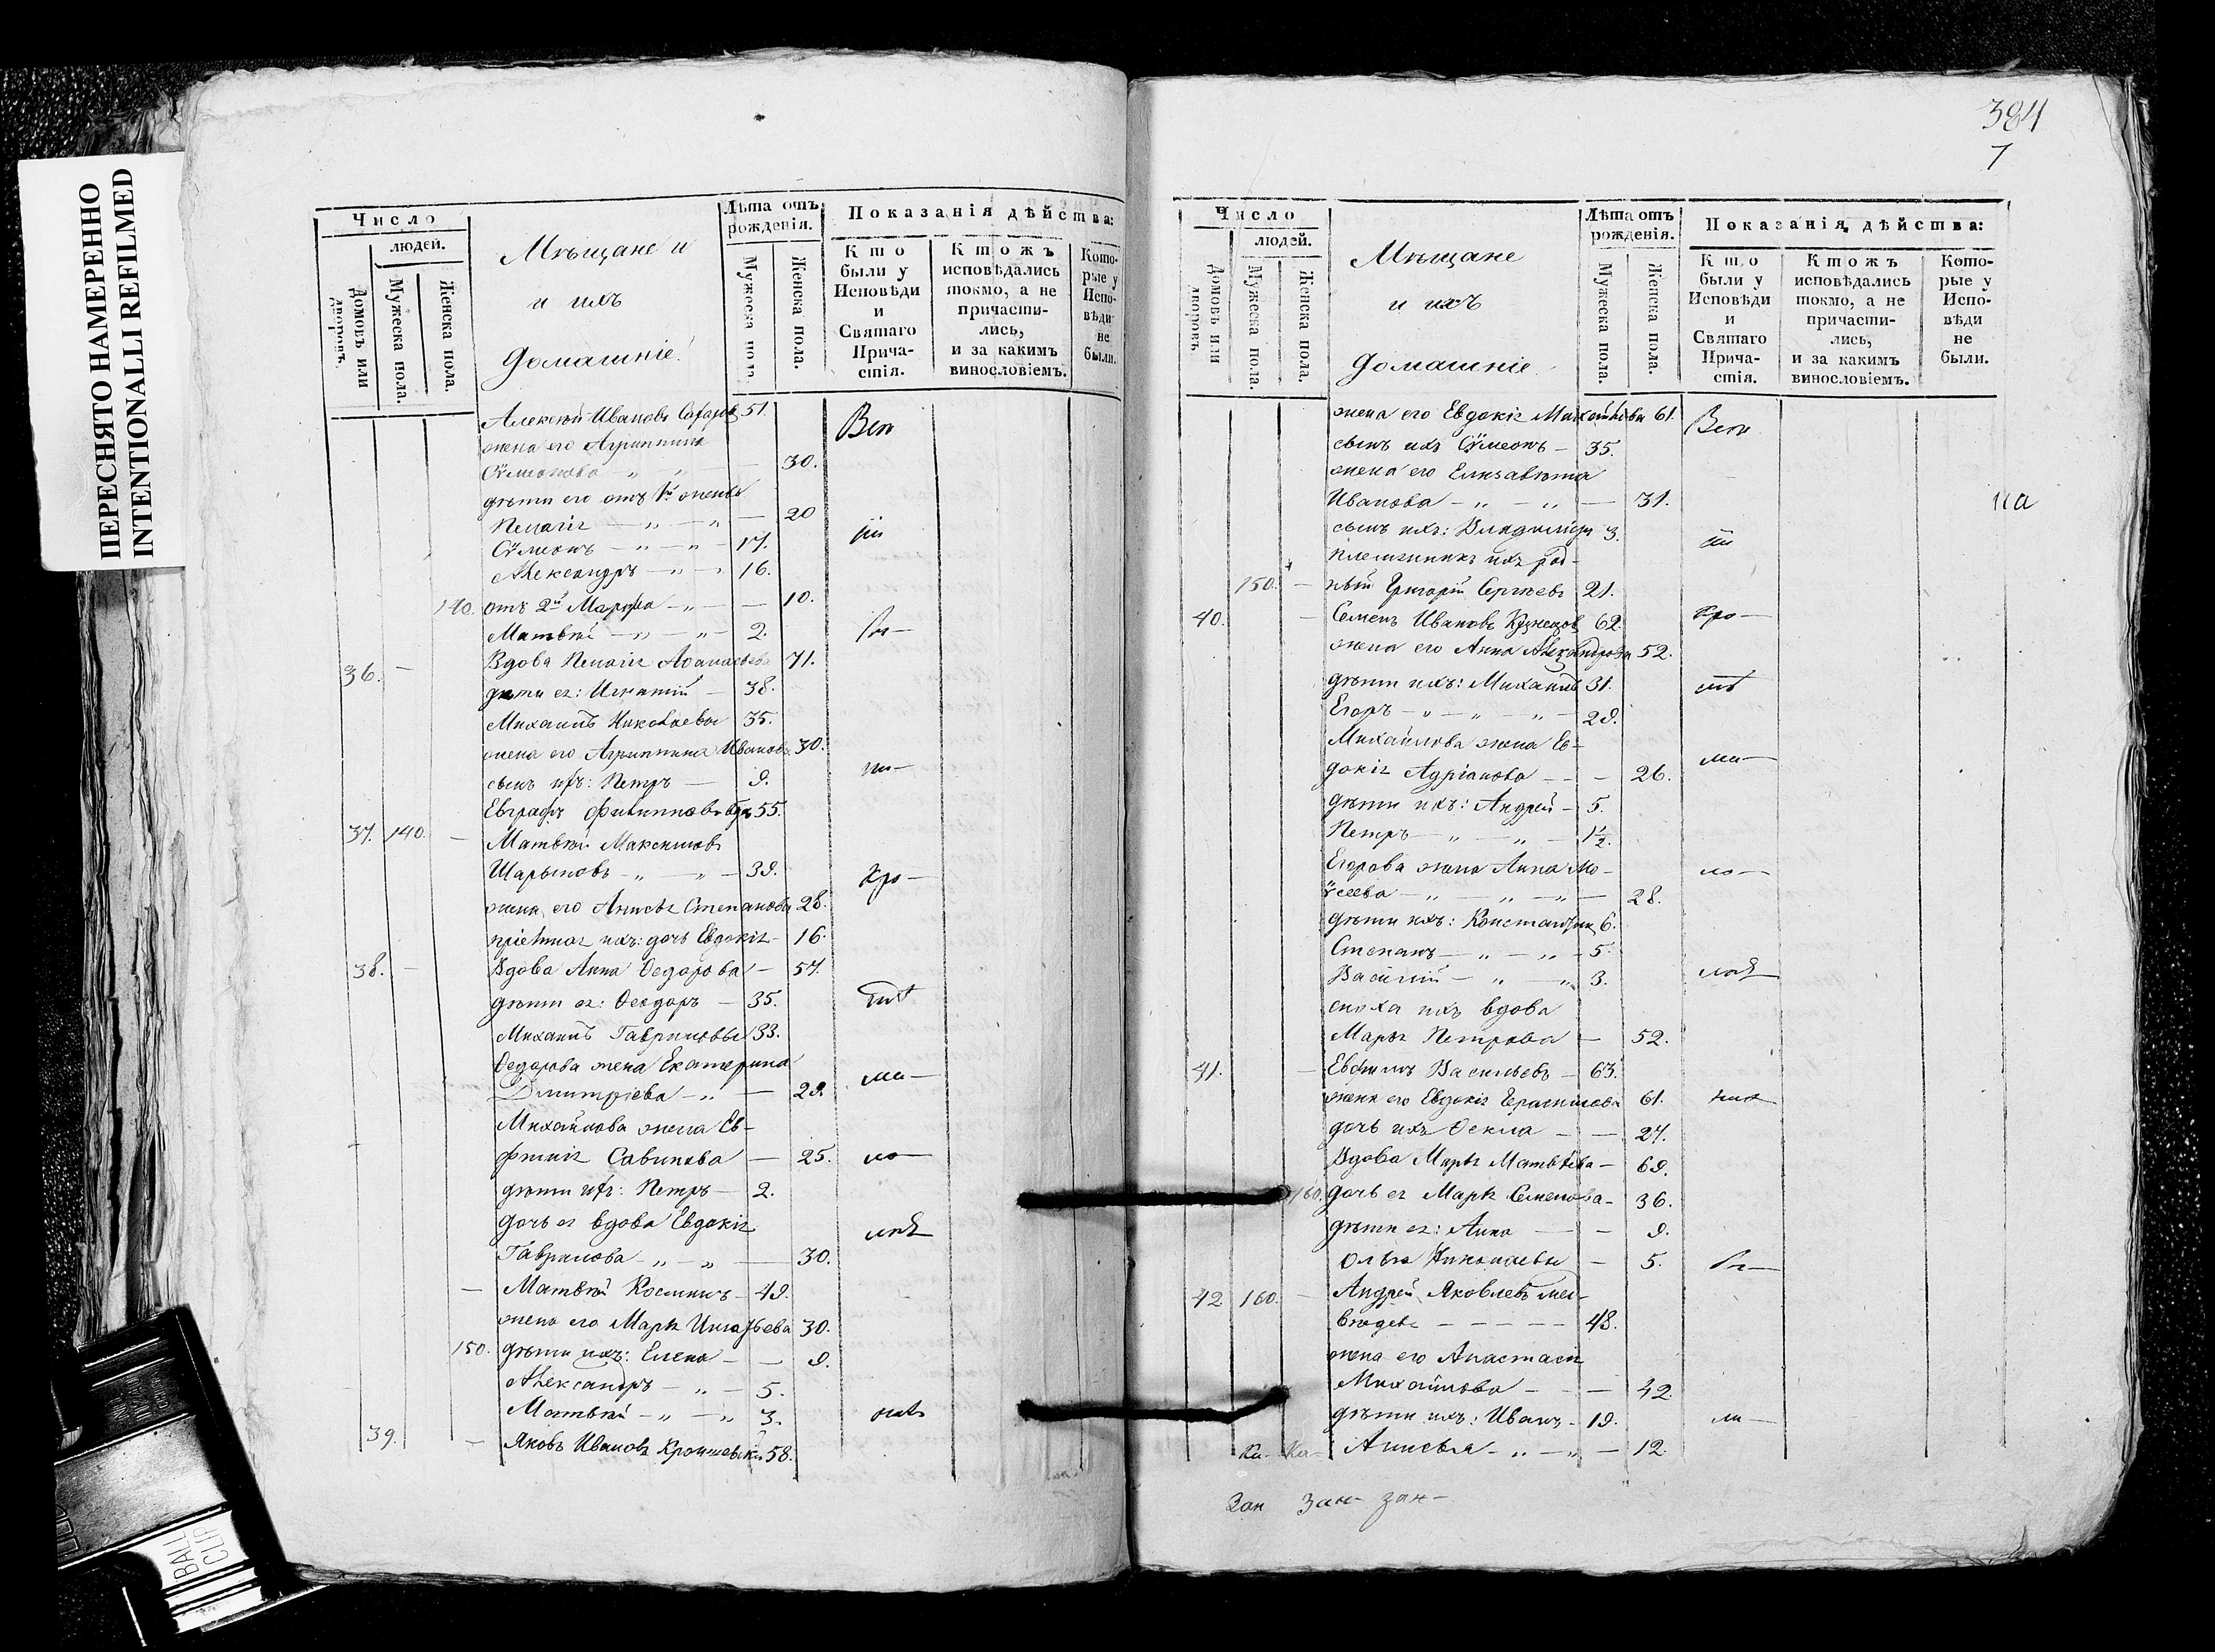 ПЕРЕСНЯТО НАМЕРЕННО
INTENTIONALLI REFILMED
BALL
CLIP
Число
людей.
Домовъ или дворовъ.
Мужеска пола.
Женска пола.
Мѣщане и
и ихъ
домашніе.
Лѣта отъ рожденія.
Мужеска пола
Женска пола.
Показанія дѣйства:
Кто были у Исповѣди и Святаго Причастія.
Ктожъ исповѣдались токмо, а не причастились, и за какимъ винословіемъ.
Которые у Исповѣди не были.
Алексѣй Ивановъ 51.
жена его Агриппина
Сѵмеонова - „ - „ - 30.
дѣти его отъ 1й жены
Пелагія - „ - „ - 20
Сѵмеонъ - „ - „ - 17.
Александръ - „ - 16.
140. отъ 2й Марѳа - „ - 10.
Матвѣй - „ - „ - 2.
36. - Вдова Пелагія Аѳанасьева 71.
дѣти ея: Игнатій - 38.
Михаилъ Николаевы 35.
жена его Агриппина Иванова 30.
сынъ ихъ: Петръ - 9.
Евграфъ Филипповъ 55.
37. 140. - Матвѣй Максимовъ
Шарыповъ - „ - „ - 39.
жена его Анисья Степанова 28.
пріемная ихъ: дочь Евдокія - 16.
38. - Вдова Анна Ѳедорова - 57.
дѣти ея: Ѳеодоръ - 35.
Михаилъ Гавриловы 33.
Ѳедорова жена Екатерина
Дмитріева - „ - 29.
Михайлова жена Ев-
фимія Савинова - 25.
дѣти ихъ: Петръ - 2.
дочь ея вдова Евдокія
Гаврилова - „ - „ - 30.
- Матвѣй Косминъ - 49.
жена его Марья 30.
150. дѣти ихъ: Елена - - 9.
Александръ - „ - 5.
Матвѣй - „ - „ 3.
39. - Яковъ Ивановъ 58.
384
7
Число
людей.
Домовъ или дворовъ
Мужеска пола.
Женска пола.
Мѣщане
и ихъ
домашніе.
Лѣта отъ рожденія.
Мужеска пола.
Женска пола.
Показанія дѣйства:
Кто были у Исповѣди и Святаго Причастія.
Ктожъ исповѣдались токмо, а не причастились, и за какимъ винословіемъ.
Которые у Исповѣди не были.
жена его Евдокія Михайлова 61.
сынъ ихъ Сѵмеонъ - 35.
жена его Елизавѣта
Иванова - „ - „ - 31.
сынъ ихъ: Владимиръ 3.
племянникъ ихъ род-
150. - ный Григорій Сергѣевъ 21.
40. - Семенъ Ивановъ Кузнецовъ 62.
жена его Анна Александрова 52.
дѣти ихъ: Михаилъ 31.
Егоръ - „ - „ - „ - 29.
Михайлова жена Ев-
докія Адріанова - - - 26.
дѣти ихъ: Андрей - 5.
Петръ - „ - „ - 1½.
Егорова жена Анна Мо-
ѵсеева - „ - „ - „ - 28.
дѣти ихъ: Константинъ 6.
Степанъ - „ - „ - 5.
Василій - „ - „ 3.
сноха ихъ вдова
Марья Петрова - 52.
41. - Евфимъ Васильевъ - 63.
жена его Евдокія Герасимова 61.
дочь ихъ Ѳекла - - 27.
Вдова Марья Матвѣева - 69.
160. дочь ея Марья Семенова - 36.
дѣти ея: Анна - - 9.
Ольга Николаевы - 5.
42 160. - Андрей Яковлевъ Мед-
вѣдевъ - - - - 48.
жена его Анастасія
Михайлова - - - 42.
дѣти ихъ: Иванъ - 19.
Анисья - „ - „ - 12.
на